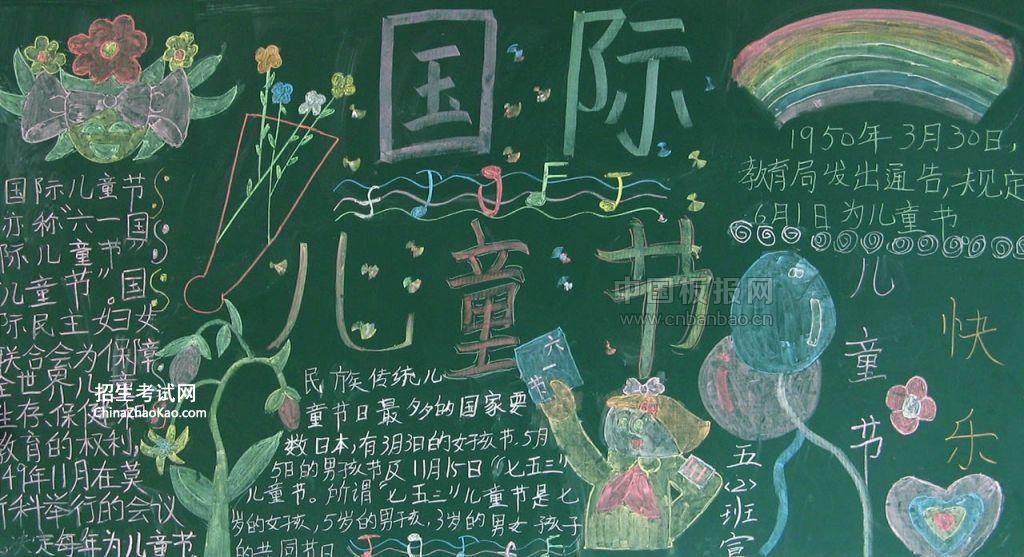 国际
儿童节
国际儿童节
亦称“六一国
际儿童节
儿童节”。国
际民主妇女
联合会为保障
全世界儿童
生存、保健
教育的权利,
49年11月在莫
斯科举行的会议
决定每年为儿童节
1950年3月30日,
教育局发出通告,规定
6月1日为儿童节
民族传统儿
童节日最多的国家要
数日本,有3月3日的女孩节.5月
5日的男孩节及11月15日“七五三”
儿童节。所谓“七五三”儿童节是七
岁的女孩,5岁的男孩,3岁的男女孩子
的共同节日
六一
节
儿童节
快乐
五〈2〉班宣
中国板报网
www.cnbanbao.cn
招生考试网
ChinaZhaoKao.com